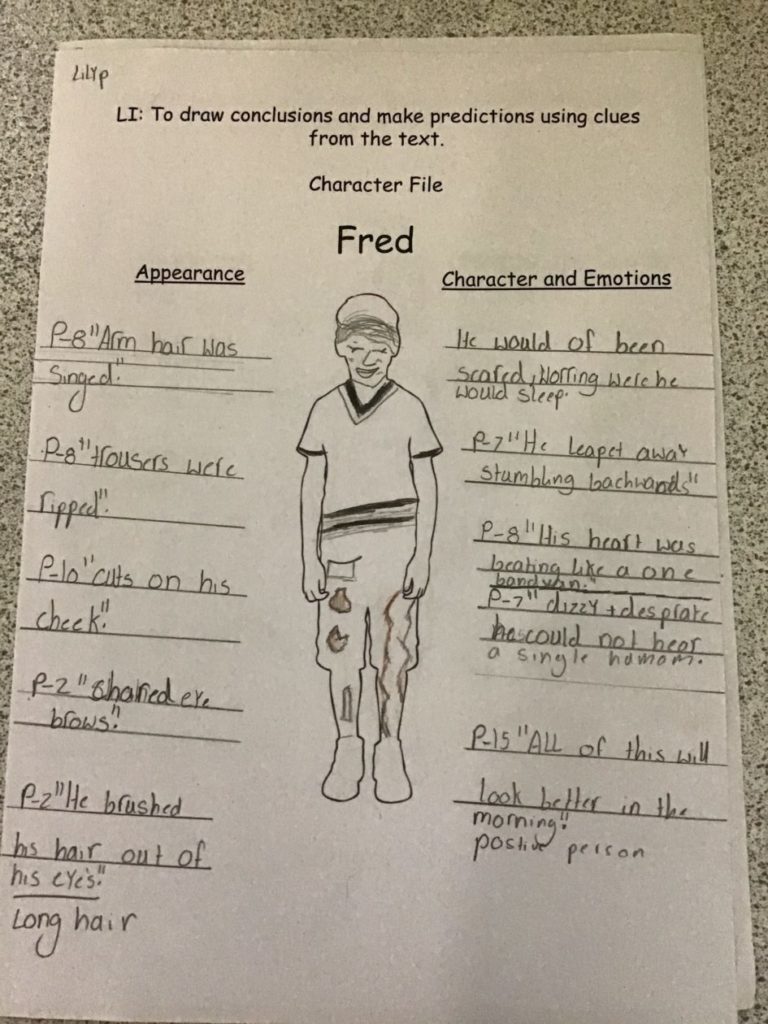 LilYp
LI: To draw conclusions and make predictions using clues
from the text.
Character File
Fred
Appearance
P-8"Arm hair was
singed."
P-8"trousers were
ripped".
P-10"cuts on his
cheek."
P-2" eye
brows."
P-2"He brushed
his hair out of
his eye's."
Long hair
Character and Emotions
He would of been
scared, Worring were he
would sleep.
P-7"He leapet away
stumbling backwards"
P-8"His heart was
beating like a one
P-7" dizzy + desprate
he could not hear
a single
P-15"ALL of this will
look better in the
morning."
postive person